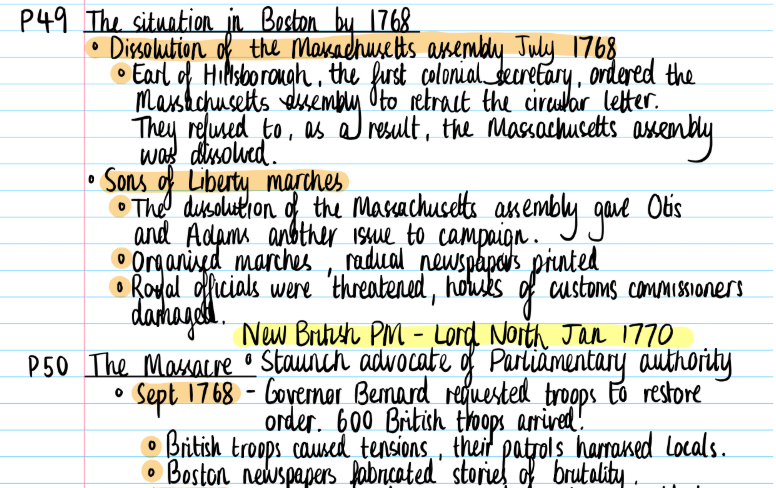 P49 The situation in Boston by 1768
• Dissolution of the Massachusetts assembly July 1768
• Earl of Hillsborough, the first colonial secretary, ordered the
Massachusetts assembly to retract the circular letter.
They refused to, as a result, the Massachusetts assembly
was dissolved.
• Sons of Liberty marches
• The dissolution of the Massachusetts assembly gave Otis
and Adams another issue to campaign.
• Organised marches, radical newspapers printed
• Royal officials were threatened, houses of customs commissioners
damaged.
New British PM - Lord North Jan 1770
P50 The Massacre • Staunch advocate of Parliamentary authority
• Sept 1768 - Governor Bernard requested troops to restore
order. 600 British troops arrived!
• British troops caused tensions, their patrols harrassed locals.
• Boston newspapers fabricated stories of brutality.